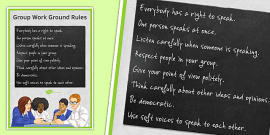 Group Work Ground Rules
Everybody has a right to speak.
One person speaks at once.
Listen carefully when someone is speaking.
Respect people in your group.
Give your point of view politely.
Think carefully about other ideas and opinions.
Be democratic.
Use soft voices to speak to each other.
Everybody has a right to speak.
One person speaks at once.
Listen carefully when someone is speaking.
Respect people in your group.
Give your point of view politely.
Think carefully about other ideas and opinions.
Be democratic.
Use soft voices to speak to each other.